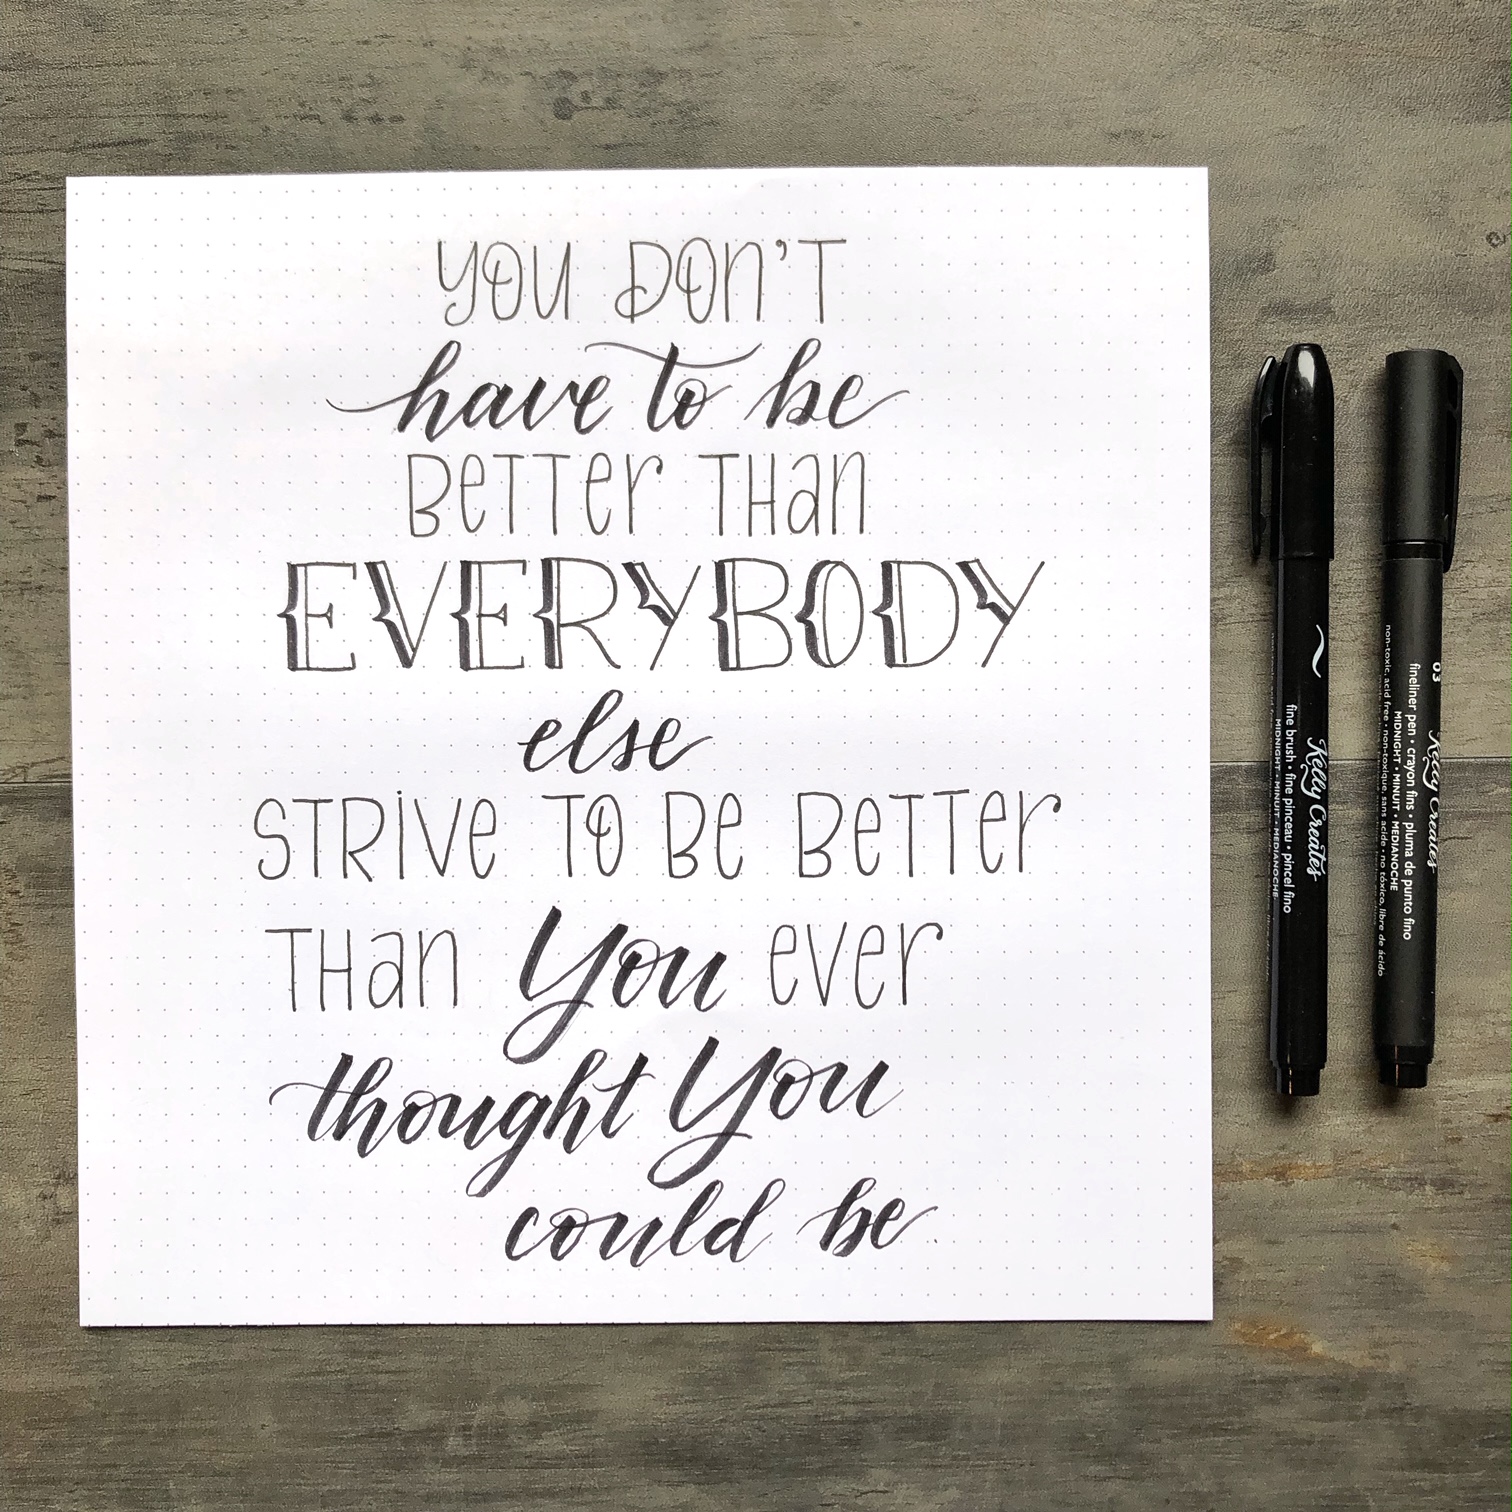 YOU DON'T
have to be
BeTTer THan
EVERYBODY
else
STRIVe TO Be BeTTer
THan You ever
thought You
could be.
Kelly Creates
fine brush • fine pinceau • pincel fino
MIDNIGHT • MINUIT • MEDIANOCHE
03 Kelly Creates
fineliner pen • crayon fins • pluma de punto fino
MIDNIGHT • MINUIT • MEDIANOCHE
non-toxic, acid free • non-toxique, sans acide • no tóxico, libre de ácido